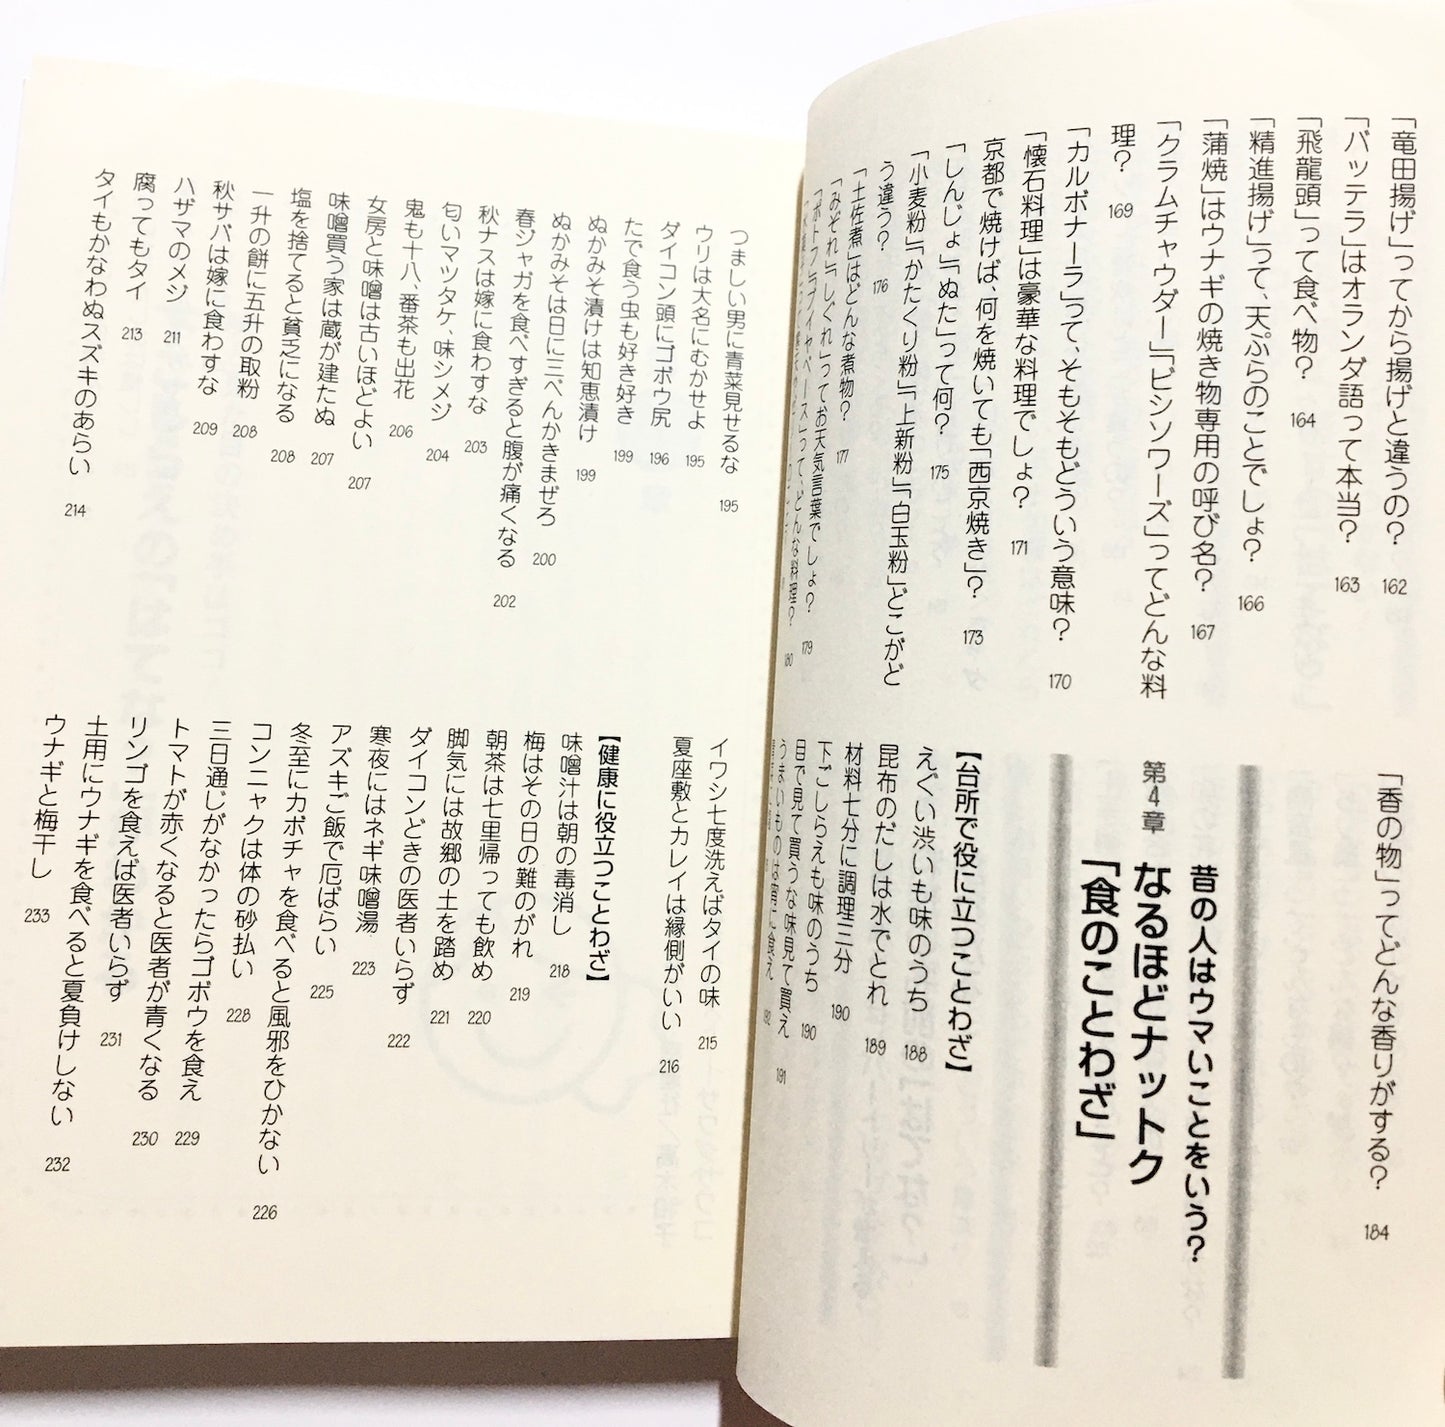 「竜田揚げ」ってから揚げと違うの? 162
「バッテラ」はオランダ語って本当? 163
「飛龍頭」って食べ物? 164
「精進揚げ」って、天ぷらのことでしょ? 166
「蒲焼」はウナギの焼き物専用の呼び名? 167
「クラムチャウダー」「ビシソワーズ」ってどんな料
理? 169
「カルボナーラ」って、そもそもどういう意味? 170
「懐石料理」は豪華な料理でしょ? 171
京都で焼けば、何を焼いても「西京焼き」? 173
「しんじょ」「ぬた」って何? 175
「小麦粉」「かたくり粉」「上新粉」「白玉粉」どこがど
う違う? 176
「土佐煮」はどんな煮物? 177
「みぞれ」「しぐれ」ってお天気言葉でしょ? 179
「ポトフ」「ブイヤベース」って、どんな料理? 180
「香の物」ってどんな香りがする? 184
第4章 昔の人はウマいことをいう?
なるほどナットク
「食のことわざ」
【台所で役に立つことわざ】
えぐい渋いも味のうち 188
昆布のだしは水でとれ 189
材料七分に調理三分 190
下ごしらえも味のうち 190
目で見て買うな味見て買え 191
うまいものは宵に食え 192
つましい男に青菜見せるな 195
ウリは大名にむかせよ 195
ダイコン頭にゴボウ尻 196
たで食う虫も好き好き 199
ぬかみそ漬けは知恵漬け 199
ぬかみそは日に三べんかきまぜろ 200
春ジャガを食べすぎると腹が痛くなる 202
秋ナスは嫁に食わすな 203
匂いマツタケ、味シメジ 204
鬼も十八、番茶も出花 206
女房と味噌は古いほどよい 207
味噌買う家は蔵が建たぬ 207
塩を捨てると貧乏になる 208
一升の餅に五升の取粉 208
秋サバは嫁に食わすな 209
ハザマのメジ 211
腐ってもタイ 213
タイもかなわぬスズキのあらい 214
イワシ七度洗えばタイの味 215
夏座敷とカレイは縁側がいい 216
【健康に役立つことわざ】
味噌汁は朝の毒消し 218
梅はその日の難のがれ 219
朝茶は七里帰っても飲め 220
脚気には故郷の土を踏め 221
ダイコンどきの医者いらず 222
寒夜にはネギ味噌湯 223
アズキご飯で厄ばらい 225
冬至にカボチャを食べると風邪をひかない 226
コンニャクは体の砂払い 228
三日通じがなかったらゴボウを食え 229
トマトが赤くなると医者が青くなる 230
リンゴを食えば医者いらず 231
土用にウナギを食べると夏負けしない 232
ウナギと梅干し 233